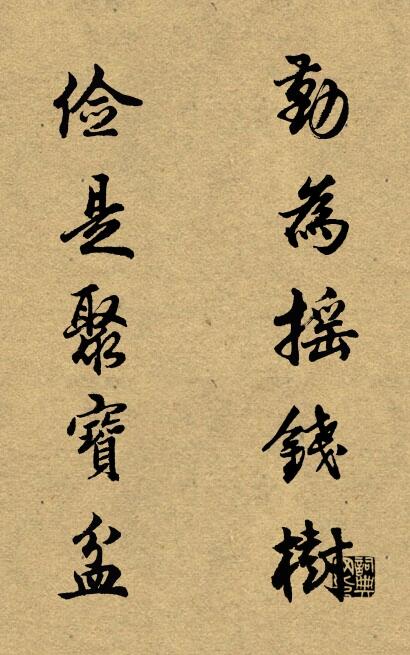 勤為摇錢樹
俭是聚寶盆